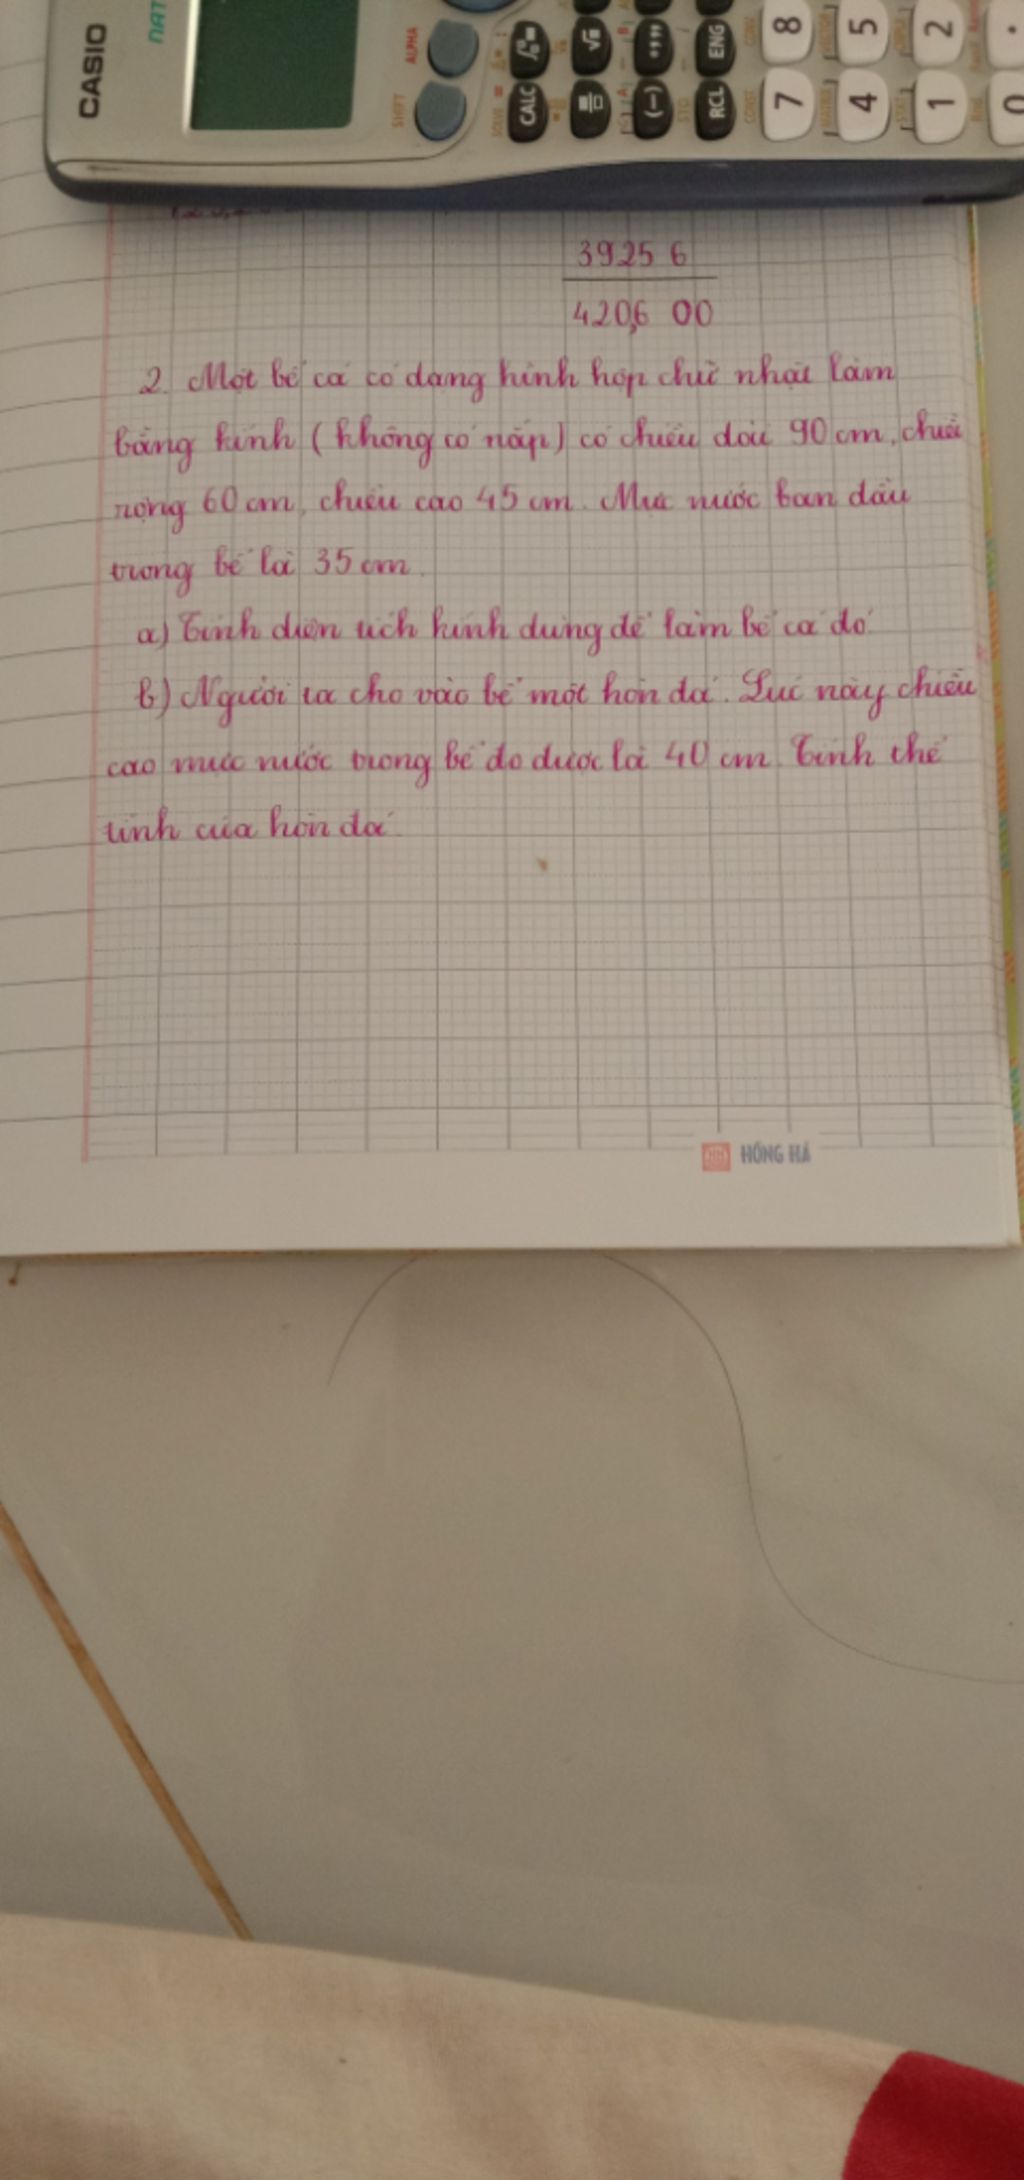 CASIO
NAT
SHIFT
ALPHA
SOLVE =
CALC
√
(—)
STO
RCL
ENG
CONST
CONV
7
8
4
5
1
2
0
.
3925 6
420,6 00
2. Một bể cá có dạng hình hộp chữ nhật làm
bằng kính (không có nắp) có chiều dài 90 cm, chiều
rộng 60 cm, chiều cao 45 cm. Mực nước ban đầu
trong bể là 35 cm.
a) Tính diện tích kính dùng để làm bể cá đó.
b) Người ta cho vào bể một hòn đá. Lúc này chiều
cao mực nước trong bể đo được là 40 cm. Tính thể
tính của hòn đá.
HH
HỒNG HÀ